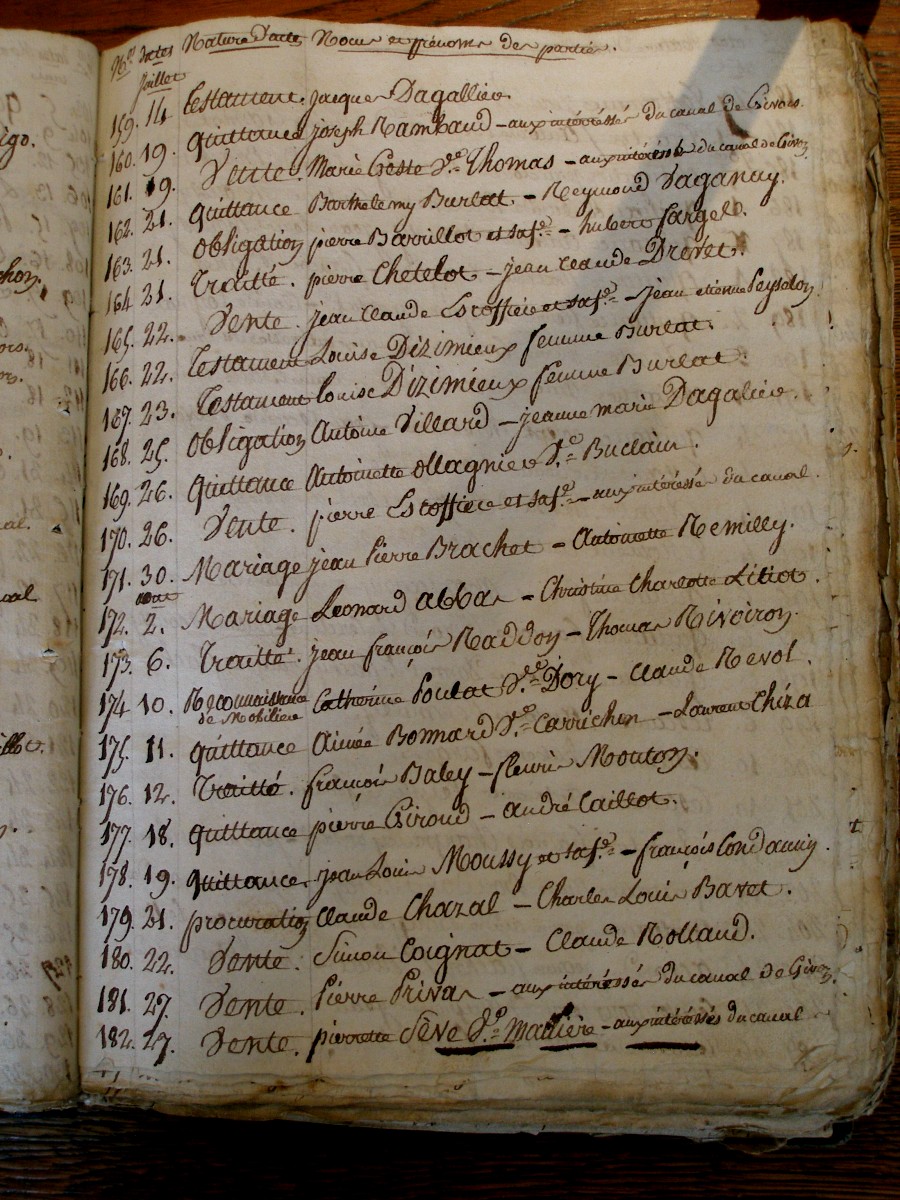 Nos. dates Nature d'actes Noms et prénoms des parties.
Juillet
159. 14 Testament. Jacques Dagallier
160. 19. quittance joseph Rambaud – aux intéressés du canal de Givors
161. 19. Vente. Marie Creste Ve. Thomas – aux intéressés du canal de Givors
162. 21. quittance Barthelemy Burlat – Reymond Daganay.
163. 21. obligation pierre Barrillot et sa fe. – hubert Farge
164 21. Traitté. pierre Chetelot – jean claude Drevet.
165. 22. Vente. jean Claude Escoffier et sa fe. – jean etienne Peyselon
166. 22. Testament Louise Dizimieux femme Burlat.
167. 23. Testament Louise Dizimieux femme Burlat.
168. 25. obligation Antoine Villard – jeanne marie Dagalier.
169. 26. quittance Antoinette ollagnier Ve. Buclain.
170. 26. Vente. pierre Escoffier et sa fe. – aux intéressés du canal.
171. 30. Mariage jean Pierre Brachet – Antoinette Remilly.
aout
172. 2. Mariage Leonard abbas – Christine Charlotte Litiot.
173. 6. Traitté. jean françois Raddon – Thomas Rivoiron.
174 10. Reconnaissance Catherine Poulat Ve. Dory – Claude Revol.
de Mobilier
175. 11. quittance Aimée Bonnard Ve. Carrichon – Laurent Chiza
176. 12. Traitté. françois Baley – fleurie Mouton.
177. 18. quittance pierre Giroud – andré Caillot.
178. 19. quittance. jean Louis Moussy et sa fe. – françois Condamin.
179. 21. procuration Claude Chazal – Charles Louis Bavet.
180. 22. Vente. Simon Coignat – Claude Rolland.
181. 27. Vente. Pierre Privas – aux intéressés du canal de Givors.
182. 27. Vente. pierrette Sève Ve. Manière – aux intéressés du canal